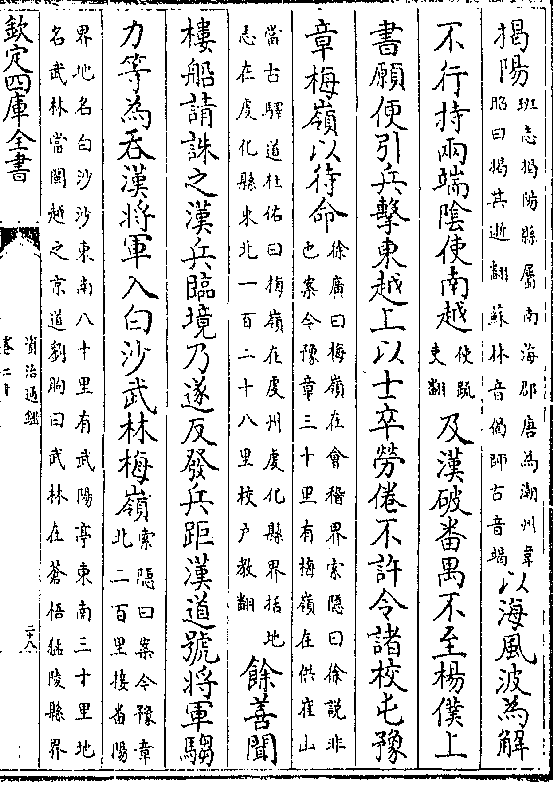 揭陽班志揭陽縣屬南海郡唐為潮州韋昭曰揭其逝翻蘇林音偈師古音竭以海風波為解
不行持兩端陰使南越使疏吏翻及漢破番禺不至楊僕上
書願便引兵擊東越上以士卒勞倦不許令諸校屯豫
章梅嶺以待命徐廣曰梅嶺在會稽界索隱曰徐說非也案今豫章三十里有梅嶺在洪崖山
當古驛道杜佑曰梅嶺在虔州虔化縣界括地志在虔化縣東北一百二十八里校戶教翻餘善聞
樓船請誅之漢兵臨境乃遂反發兵距漢道號將軍騶
力等為吞漢將軍入白沙武林梅嶺索隱曰案今豫章北二百里接番陽
界地名白沙沙東南八十里有武陽亭東南三十里地名武林當閩越之京道劉昫曰武林在蒼梧猛陵縣界
欽定四庫全書
資治通鑑
卷二十
二十八